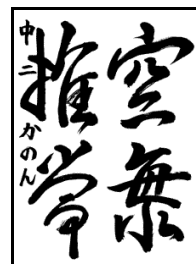 空無
推常
中二 かのん